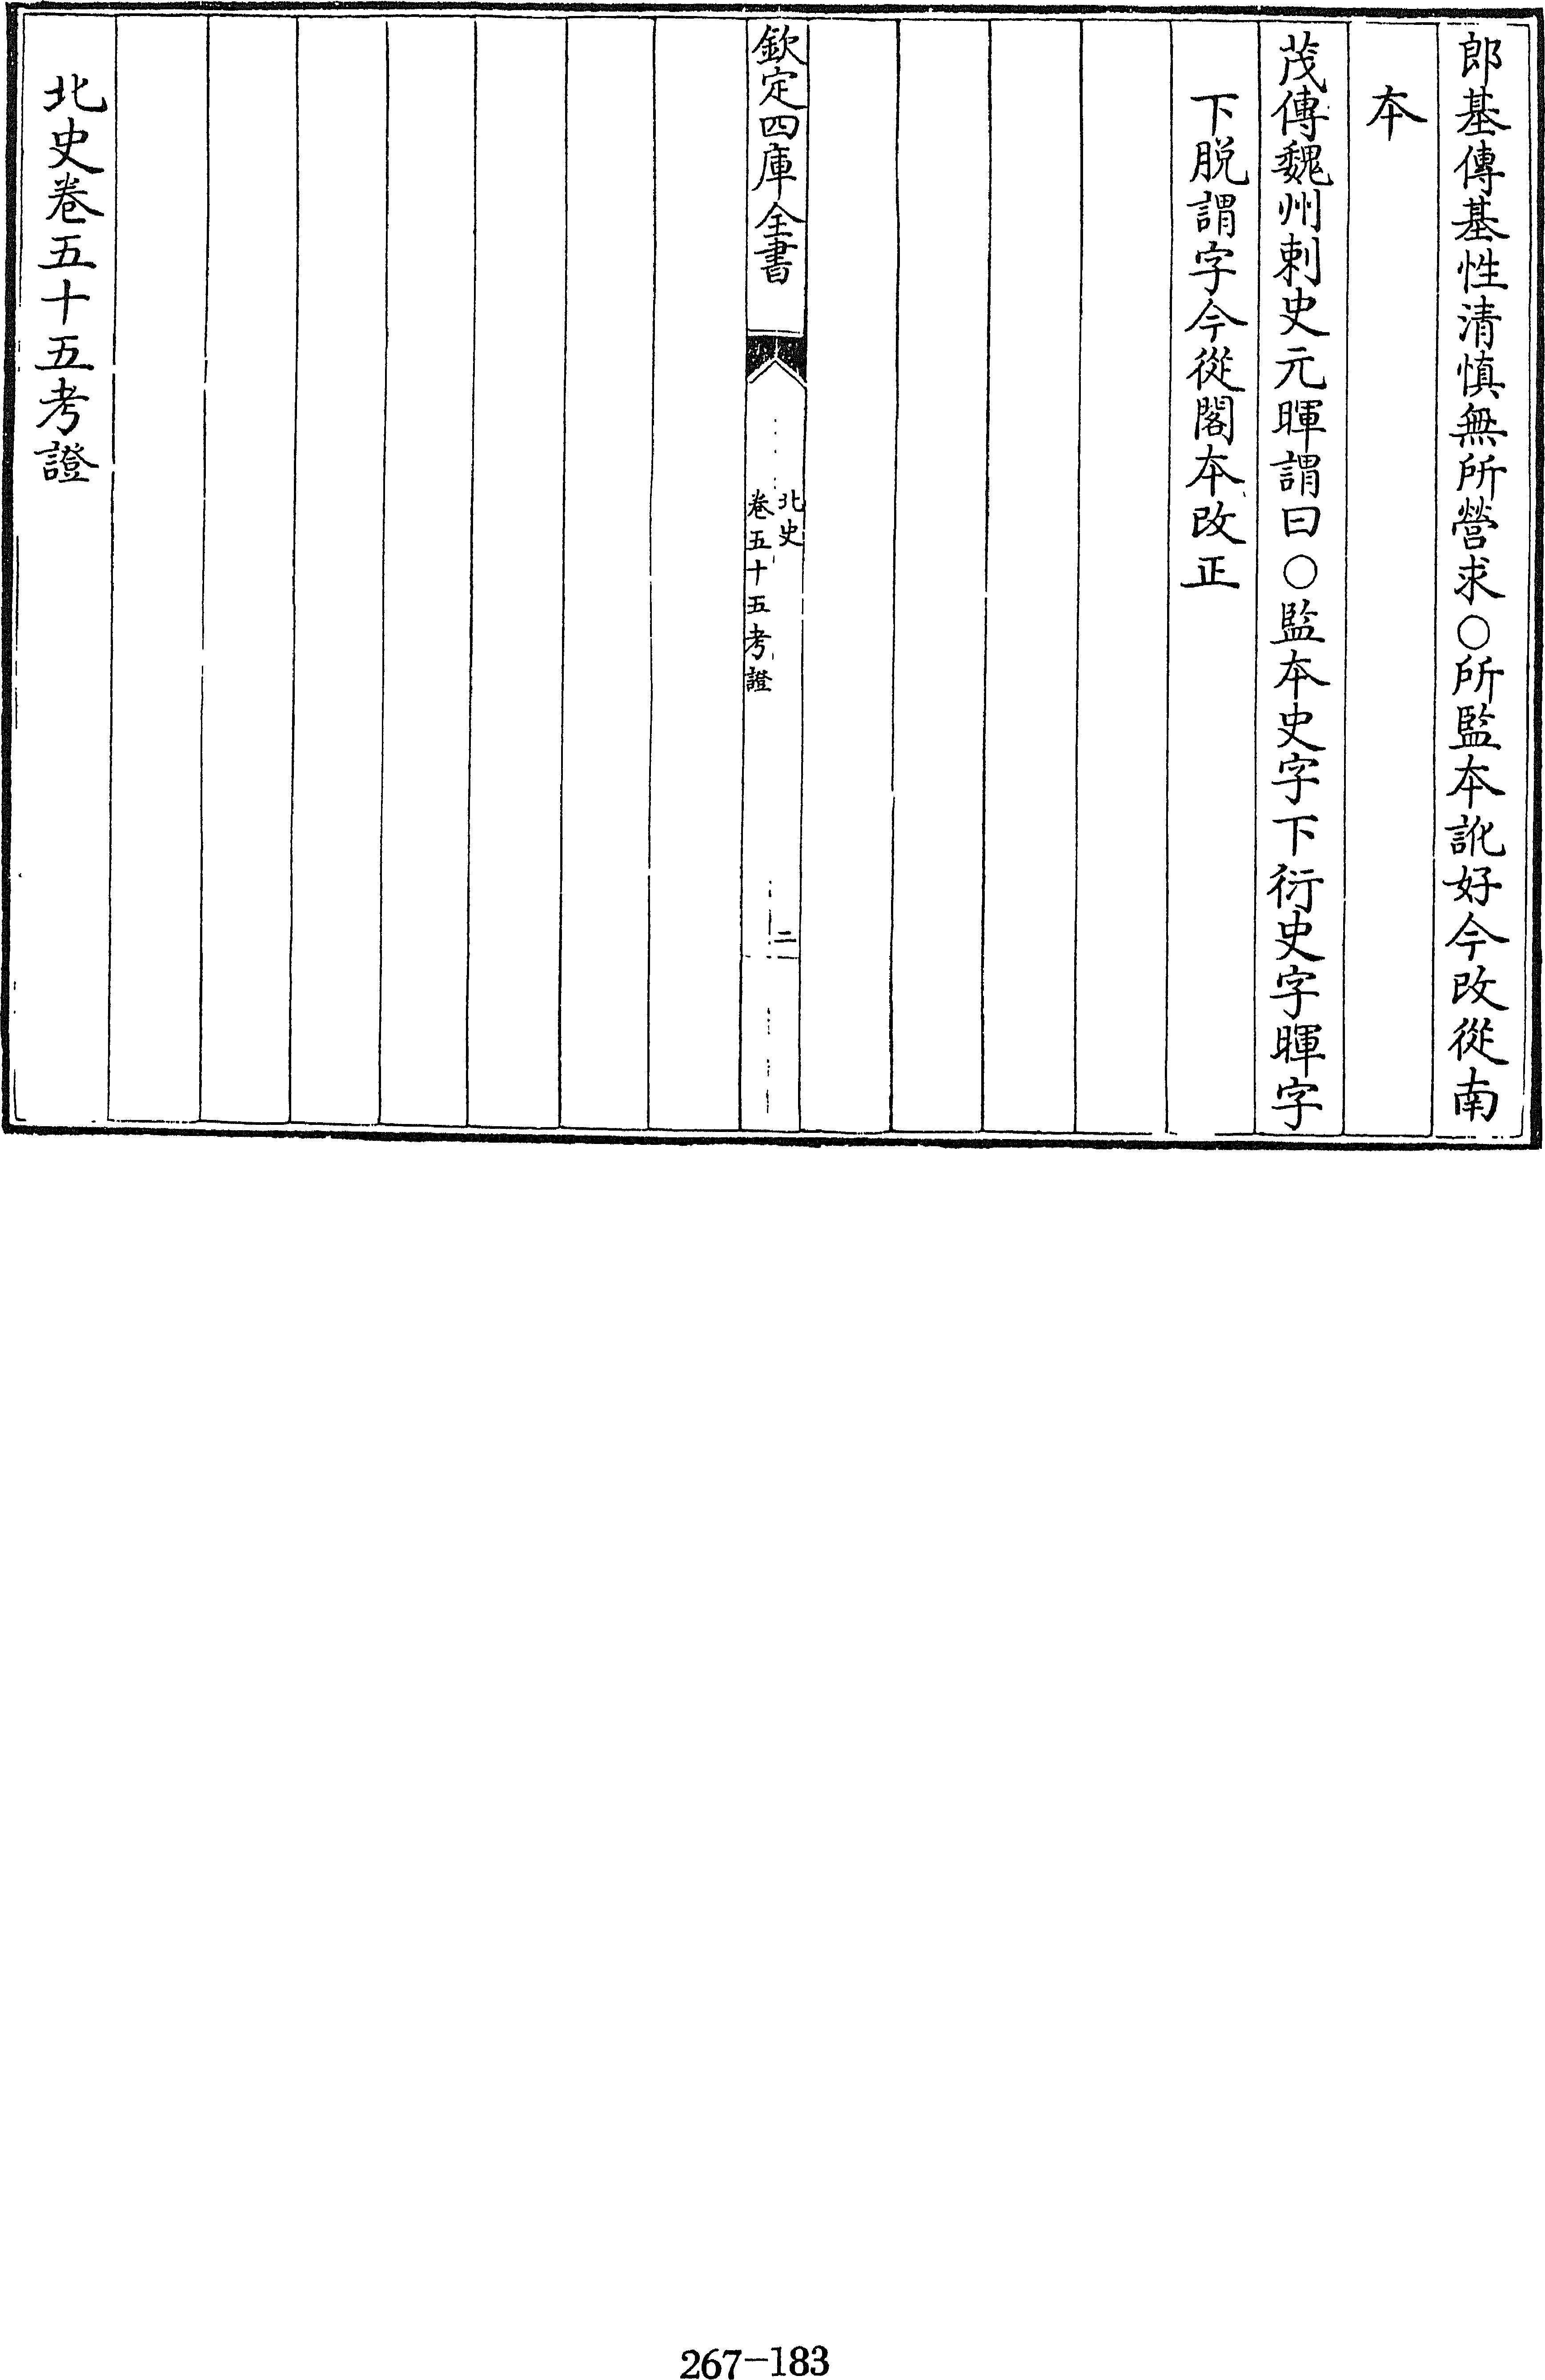 郎基傳基性清慎無所營求○所監本訛好今改從南
本
茂傳魏州刺史元暉謂曰○監本史字下衍史字暉字
下脱謂字今從閣本改正
欽定四庫全書
北史
卷五十五考證
二
北史卷五十五考證
267-183